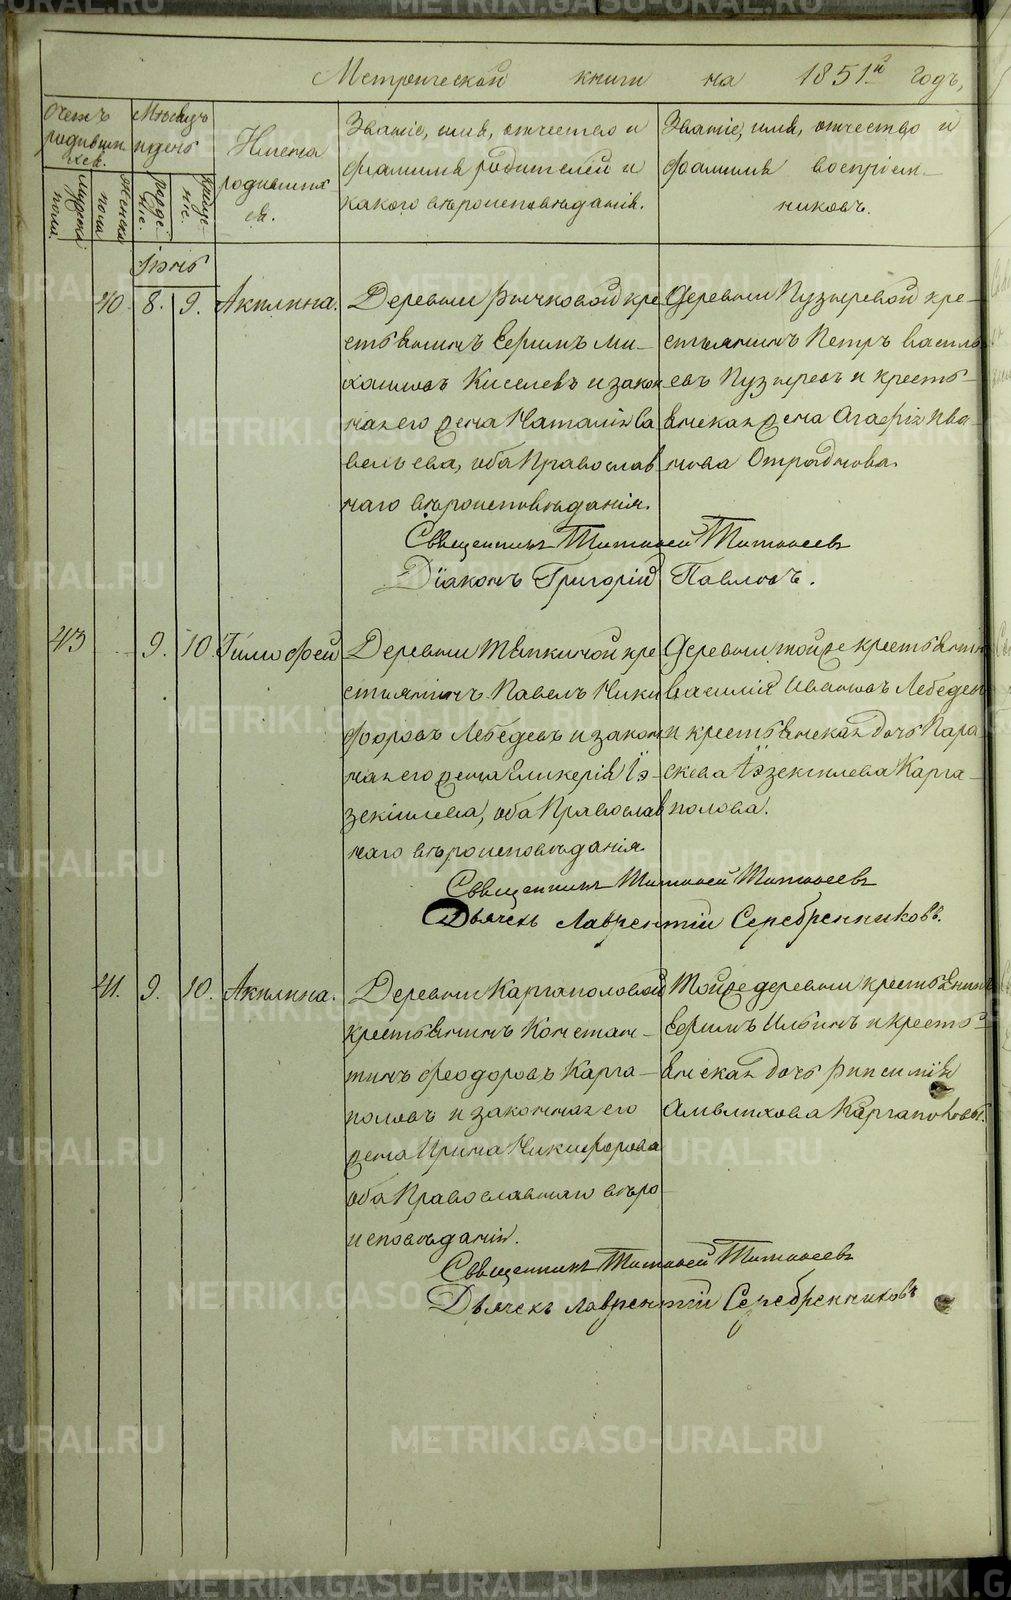 Метрической книги на 1851й годъ,
Счетъ родившихся.
Мужеска пола.
Женска пола.
Мѣсяцъ и день
рожденіе.
крещеніе.
Имена родившихся.
Званіе, имя, отчество и
фамилія родителей и
какого вѣроисповѣданія.
Званіе, имя, отчество и
фамилія воспріем-
никовъ.
Іюнь
40. 8. 9. Акилина.
Деревни Рычковой кре
стьянинъ Ефимъ Ми-
хаиловъ Киселевъ и закон
ная его жена Наталія Са
вельева, оба Православ
наго вѣроисповѣданія.
Деревни Пузыревой кре-
стьянинъ Петръ Василь
евъ Пузыревъ и кресть-
янская жена Агафія Ива
нова Отраднова.
Священникъ Тимофей Тимофеевъ
Діаконъ Григорій Павловъ.
43 9. 10. Тимофей
Деревни Тяпкиной кре
стьянинъ Павелъ Ники
форовъ Лебедевъ и закон
ная его жена Гликерія Іэ-
зекіилева, оба Православ
наго вѣроисповѣданія.
Деревни тойже крестьянинъ
Василій Ивановъ Лебедевъ
и крестьянская дочь Пара
скева Іэзекіилева Карга-
полова.
Священникъ Тимофей Тимофеевъ
Дьячекъ Лаврентій Серебренниковъ.
41. 9. 10. Акилина.
Деревни Каргаполовой
крестьянинъ Констан-
тинъ Феодоровъ Карга-
половъ и законная его
жена Ирина Никифорова
оба Православнаго вѣро-
исповѣданія.
Тойже деревни крестьянинъ
Ефимъ Ильинъ и кресть-
янская дочь Рипсимія
Амвлихова Каргаполовы.
Священникъ Тимофей Тимофеевъ
Дьячекъ Лаврентій Серебренниковъ
METRIKI.GASO-URAL.RU